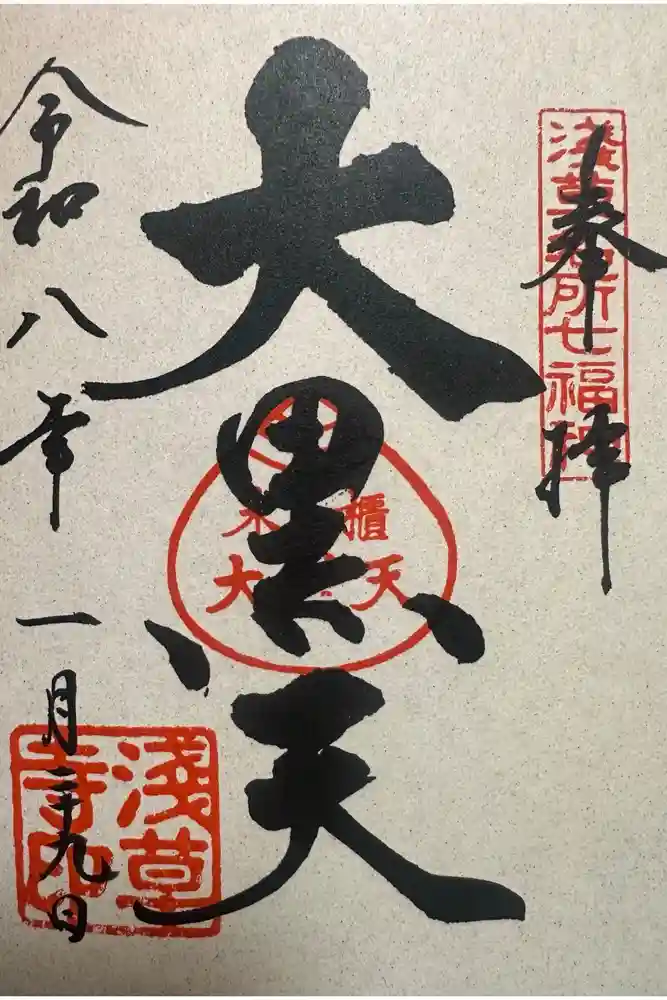 奉拝
淺草名所七福神
大黒天
米櫃
大黒天
令和八年一月二十九日
淺草寺印